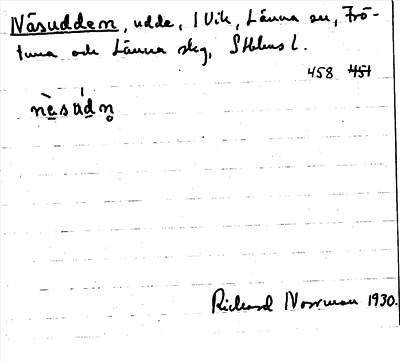 Näsudden, udde, 1 Vik, Länna sn, Frö-
tuna och Länna skg, Sthlms l.
458 451
nè̱súdn̥
Richard Norrman 1930.